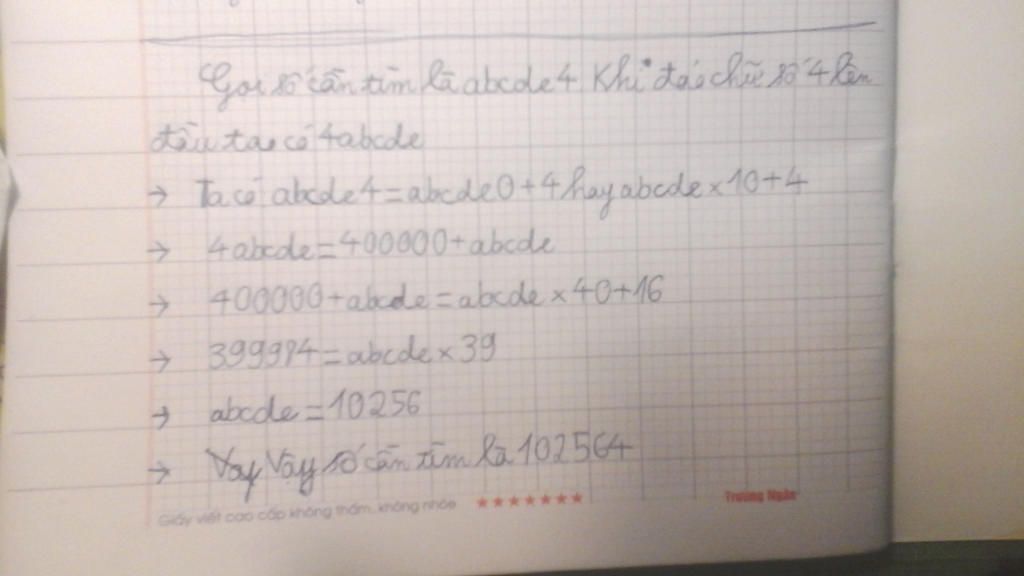 Gọi số cần tìm là abcde4 Khi đảo chữ số 4 lên
đầu ta có 4abcde
→ Ta có abcde4 = abcde0 + 4 hay abcde × 10 + 4
→ 4abcde = 400000 + abcde
→ 400000 + abcde = abcde × 40 + 16
→ 399984 = abcde × 39
→ abcde = 10256
→ Vậy số cần tìm là 102564
Giấy viết cao cấp không thấm, không nhòe ★★★★★★★ Trường Ngân